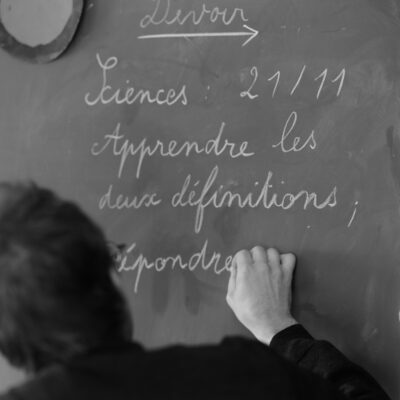 Devoir
Sciences : 21/11
Apprendre les
deux définitions ;
répondre